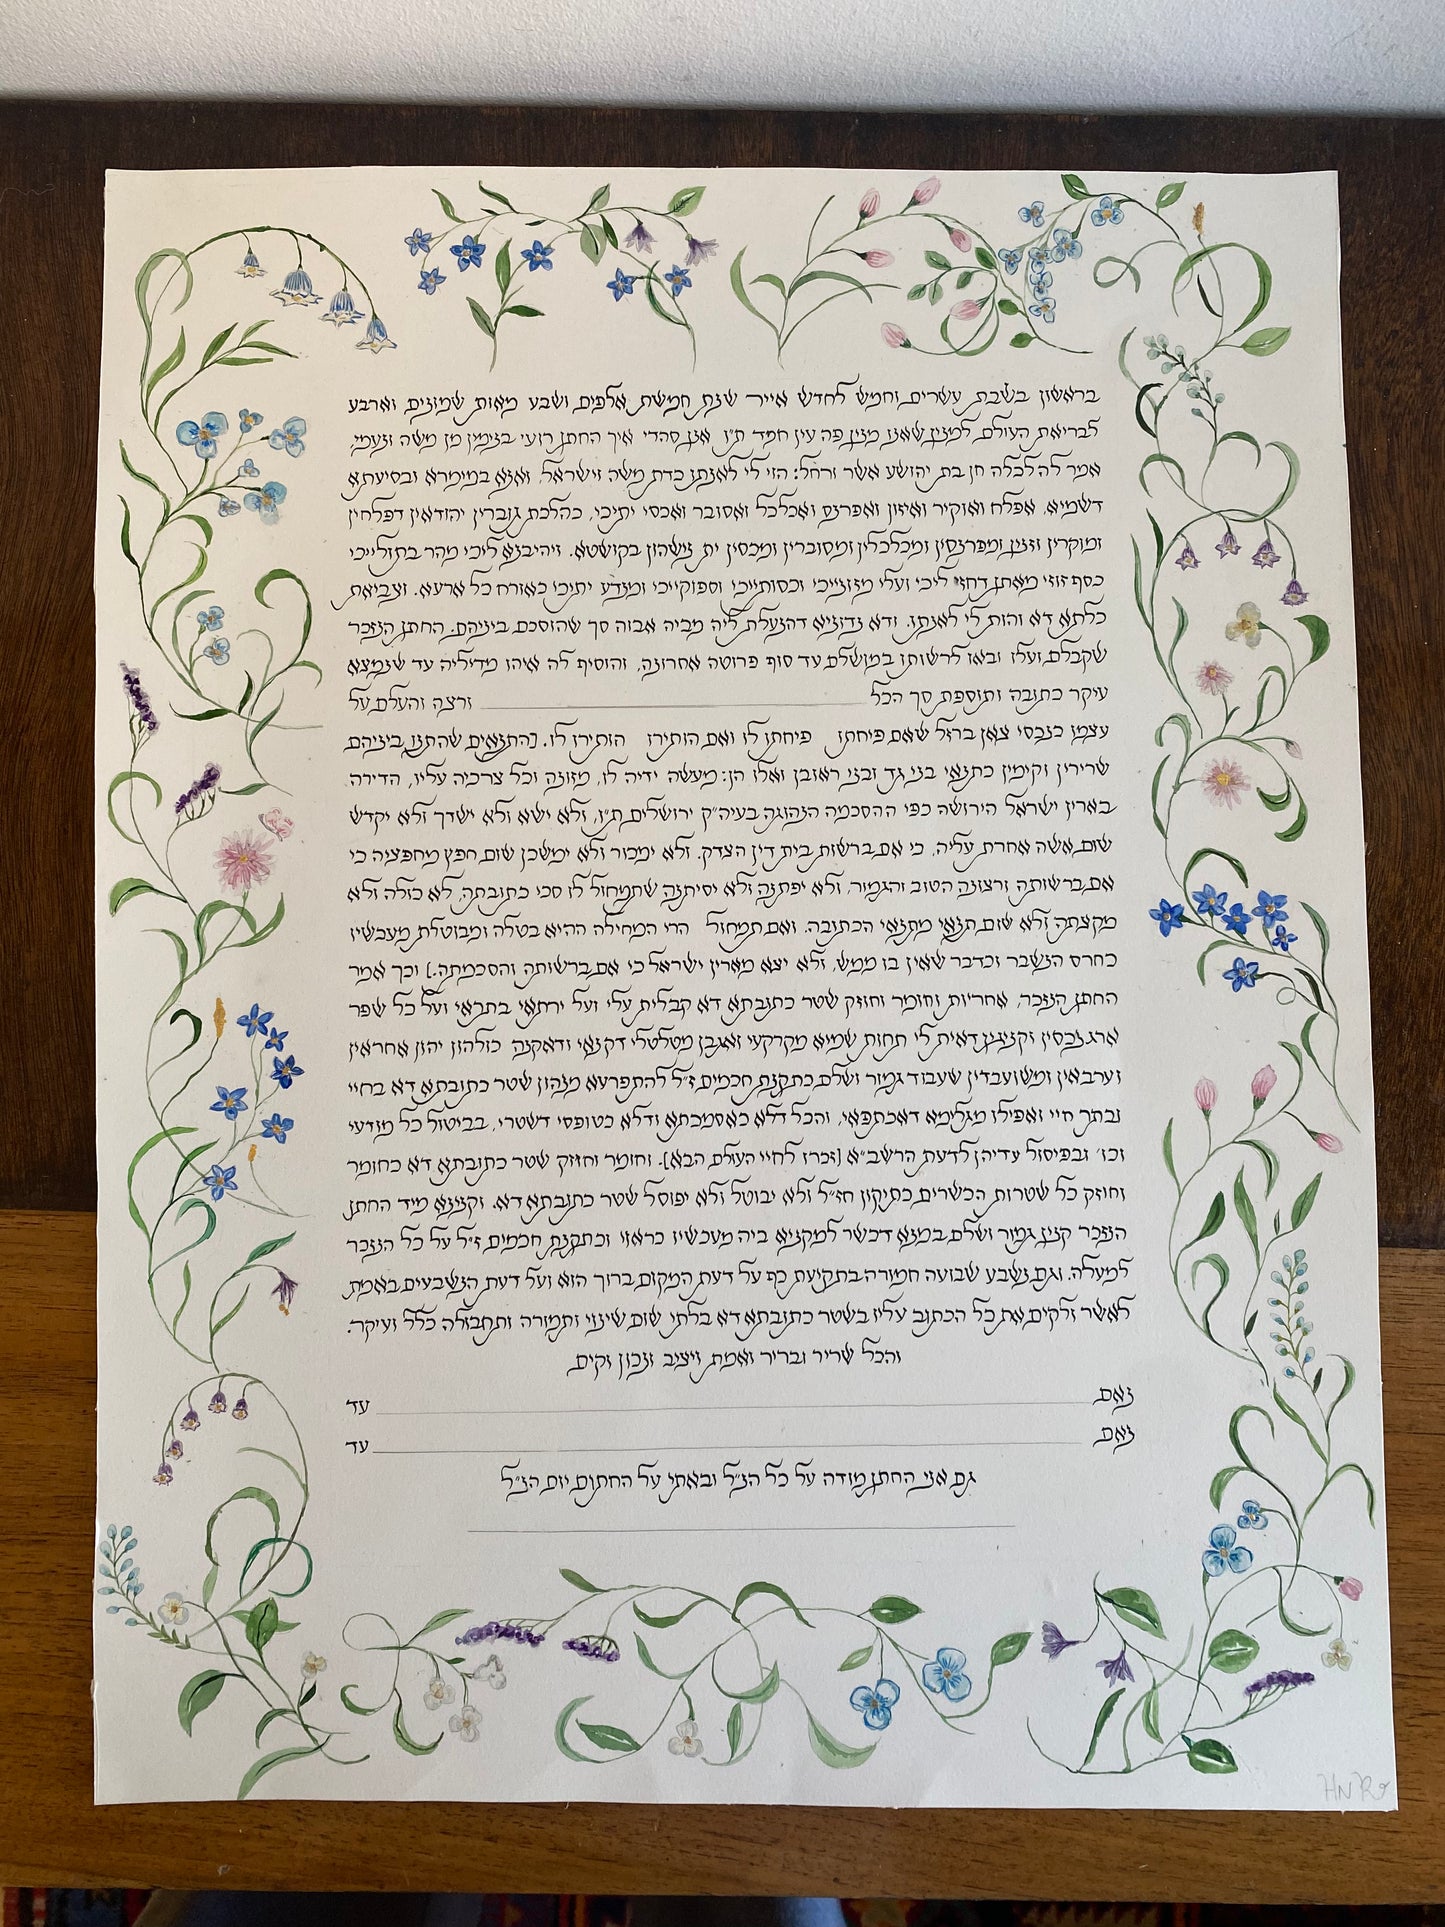 בראשון בשבת עשרים וחמש לחדש אייר שנת חמשת אלפים ושבע מאות שמונים וארבע
לבריאת העולם למנין שאנו מנין פה עין חמד ת״ו אנן סהדי איך החתן רועי בנימין מן משה ונעמי,
אמר לה לכלה חן בת יהושע אשר ורחל: הוי לי לאנתו כדת משה וישראל, ואנא במימרא ובסיעתא
דשמיא, אפלח ואוקיר ואיזון ואפרנס ואכלכל ואסובר ואכסי יתיכי, כהלכת גוברין יהודאין דפלחין
ומוקרין וזנין ומפרנסין ומכלכלין ומסוברין ומכסין ית נשיהון בקושטא. ויהיבנא ליכי מהר בתולייכי
כסף זוזי מאתן דחזי ליכי ועלי מזונייכי וכסותייכי וספוקייכי ומנדע יתיכי כאורח כל ארעא. וצביאת
כלתא דא והות לי לאנתו. ודא נדוניא דהנעלת ליה מביה אבוה סך שהוסכם ביניהם. החתן הנזכר
שקבלם ועלו ובאו לרשותו במושלם עד סוף פרוטה אחרונה, והוסיף לה איהו מדיליה עד שנמצא
עיקר כתובה ותוספת סך הכל ורצה והעלם על
עצמו כנכסי צאן ברזל שאם פיחתו פיחתו לו ואם הותירו הותירו לו. [התנאים שהתנו ביניהם
שרירין וקימין כתנאי בני גד ובני ראובן ואלו הן: מעשה ידיה לו, מזונה וכל צרכיה עליו, הדירה
בארץ ישראל הירושה כפי ההסכמה הנהוגה בעיה״ק ירושלים ת״ו, ולא ישא ולא ישדך ולא יקדש
שום אשה אחרת עליה, כי אם ברשות בית דין הצדק. ולא ימכור ולא ימשכן שום חפץ מחפציה כי
אם ברשותה ורצונה הטוב והגמור, ולא יפתנה ולא יסיתנה שתמחול לו סכי כתובתה, לא כולה ולא
מקצתה ולא שום תנאי מתנאי הכתובה. ואם תמחול הרי המחילה ההיא בטלה ומבוטלת מעכשיו
כחרס הנשבר וכדבר שאין בו ממש, ולא יצא מארץ ישראל כי אם ברשותה והסכמתה.] וכך אמר
החתן הנזכר, אחריות וחומר וחוזק שטר כתובתא דא קבלית עלי ועל ירתאי בתראי ועל כל שפר
ארג נכסין וקנינין דאית לי תחות שמיא מקרקעי ואגבן מטלטלי דקנאי ודאקנה כולהון יהון אחראין
וערבאין ומשועבדין שעבוד גמור ושלם כתקנת חכמים ז״ל להתפרעא מנהון שטר כתובתא דא בחיי
ובתר חיי ואפילו מגלימא דאכתפאי, והכל דלא כאסמכתא ודלא כטופסי דשטרי, בביטול כל מודעי
וכו׳ ובפיסול עדיהן לדעת הרשב״א (זכרו לחיי העולם הבא). וחומר וחוזק שטר כתובתא דא כחומר
וחוזק כל שטרות הכשרים כתיקון חז״ל ולא יבוטל ולא יפוסל שטר כתובתא דא. וקנינא מיד החתן
הנזכר קנין גמור ושלם במנא דכשר למקניא ביה מעכשיו כראוי וכתקנת חכמים ז״ל על כל הנזכר
למעלה. וגם נשבע שבועה חמורה בתקיעת כף על דעת המקום ברוך הוא ועל דעת הנשבעים באמת
לאשר ולקים את כל הכתוב עליו בשטר כתובתא דא בלתי שום שינוי ותמורה ותחבולה כלל ועיקר.
והכל שריר ובריר ואמת ויציב ונכון וקים
נאם עד
נאם עד
גם אני החתן מודה על כל הנ״ל ובאתי על החתום יום הנ״ל